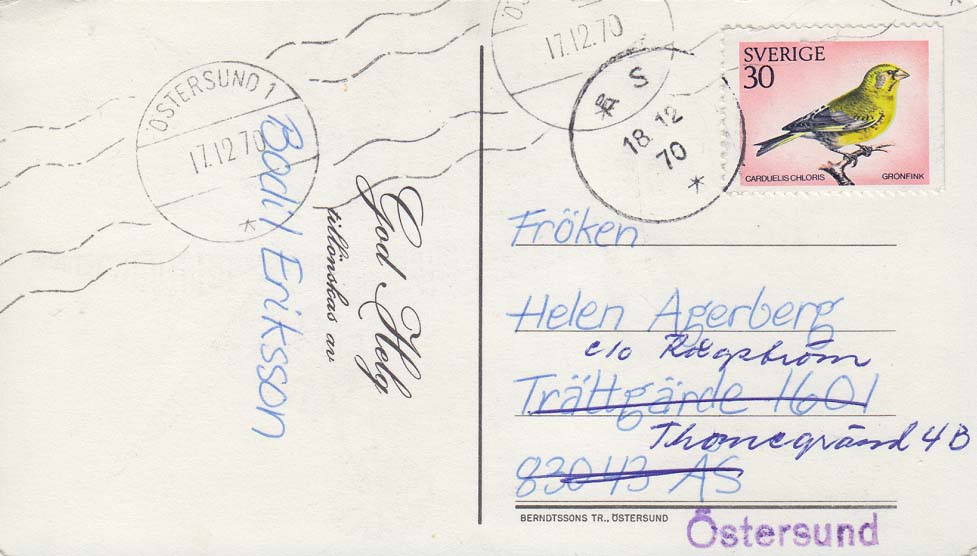 ÖSTERSUND 1
17.12.70
Bodil Eriksson
God Helg
tillönskas av
17.12.70
ÅS
18.12
70
SVERIGE
30
CARDUELIS CHLORIS GRÖNFINK
Fröken
Helen Agerberg
c/o
Trättgärde 1601
Thomegränd 4B
83043 ÅS
Östersund
BERNDTSSONS TR., ÖSTERSUND